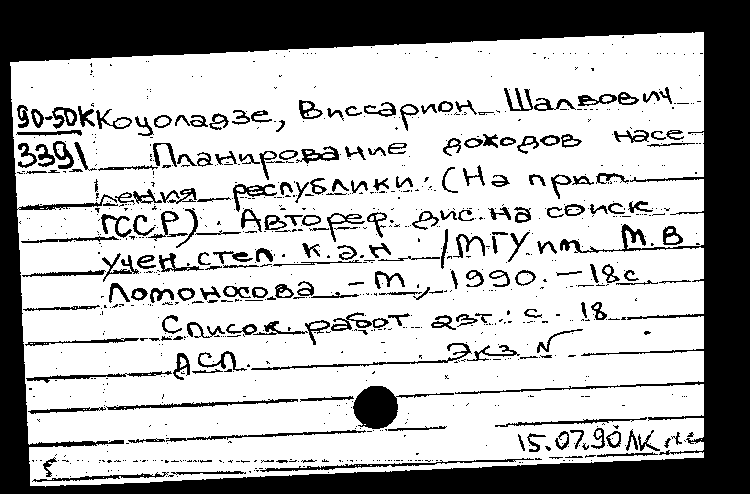 90-50К Коцоладзе, Виссарион Шалвович
3391 Планирование доходов насе-
ления республики. (На прим.
ГССР). Автореф. дис. на соиск.
учен. степ. к.э.н. /МГУ им. М.В.
Ломоносова. - М, 1990. - 18 с.
Список работ авт.: с. 18
ДСП. Экз №
15.07.90
5